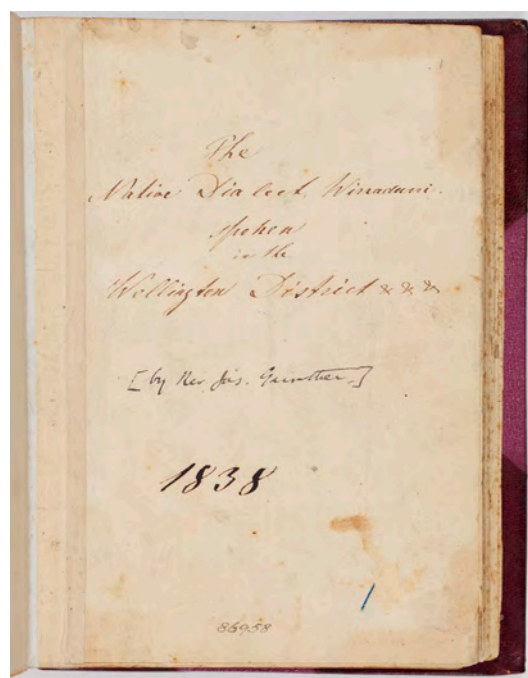 The
Native Dialect Wirradurri
spoken
in the
Wellington District &c &c &c
[by Rev. Jas. Gunther.]
1838
/
86958